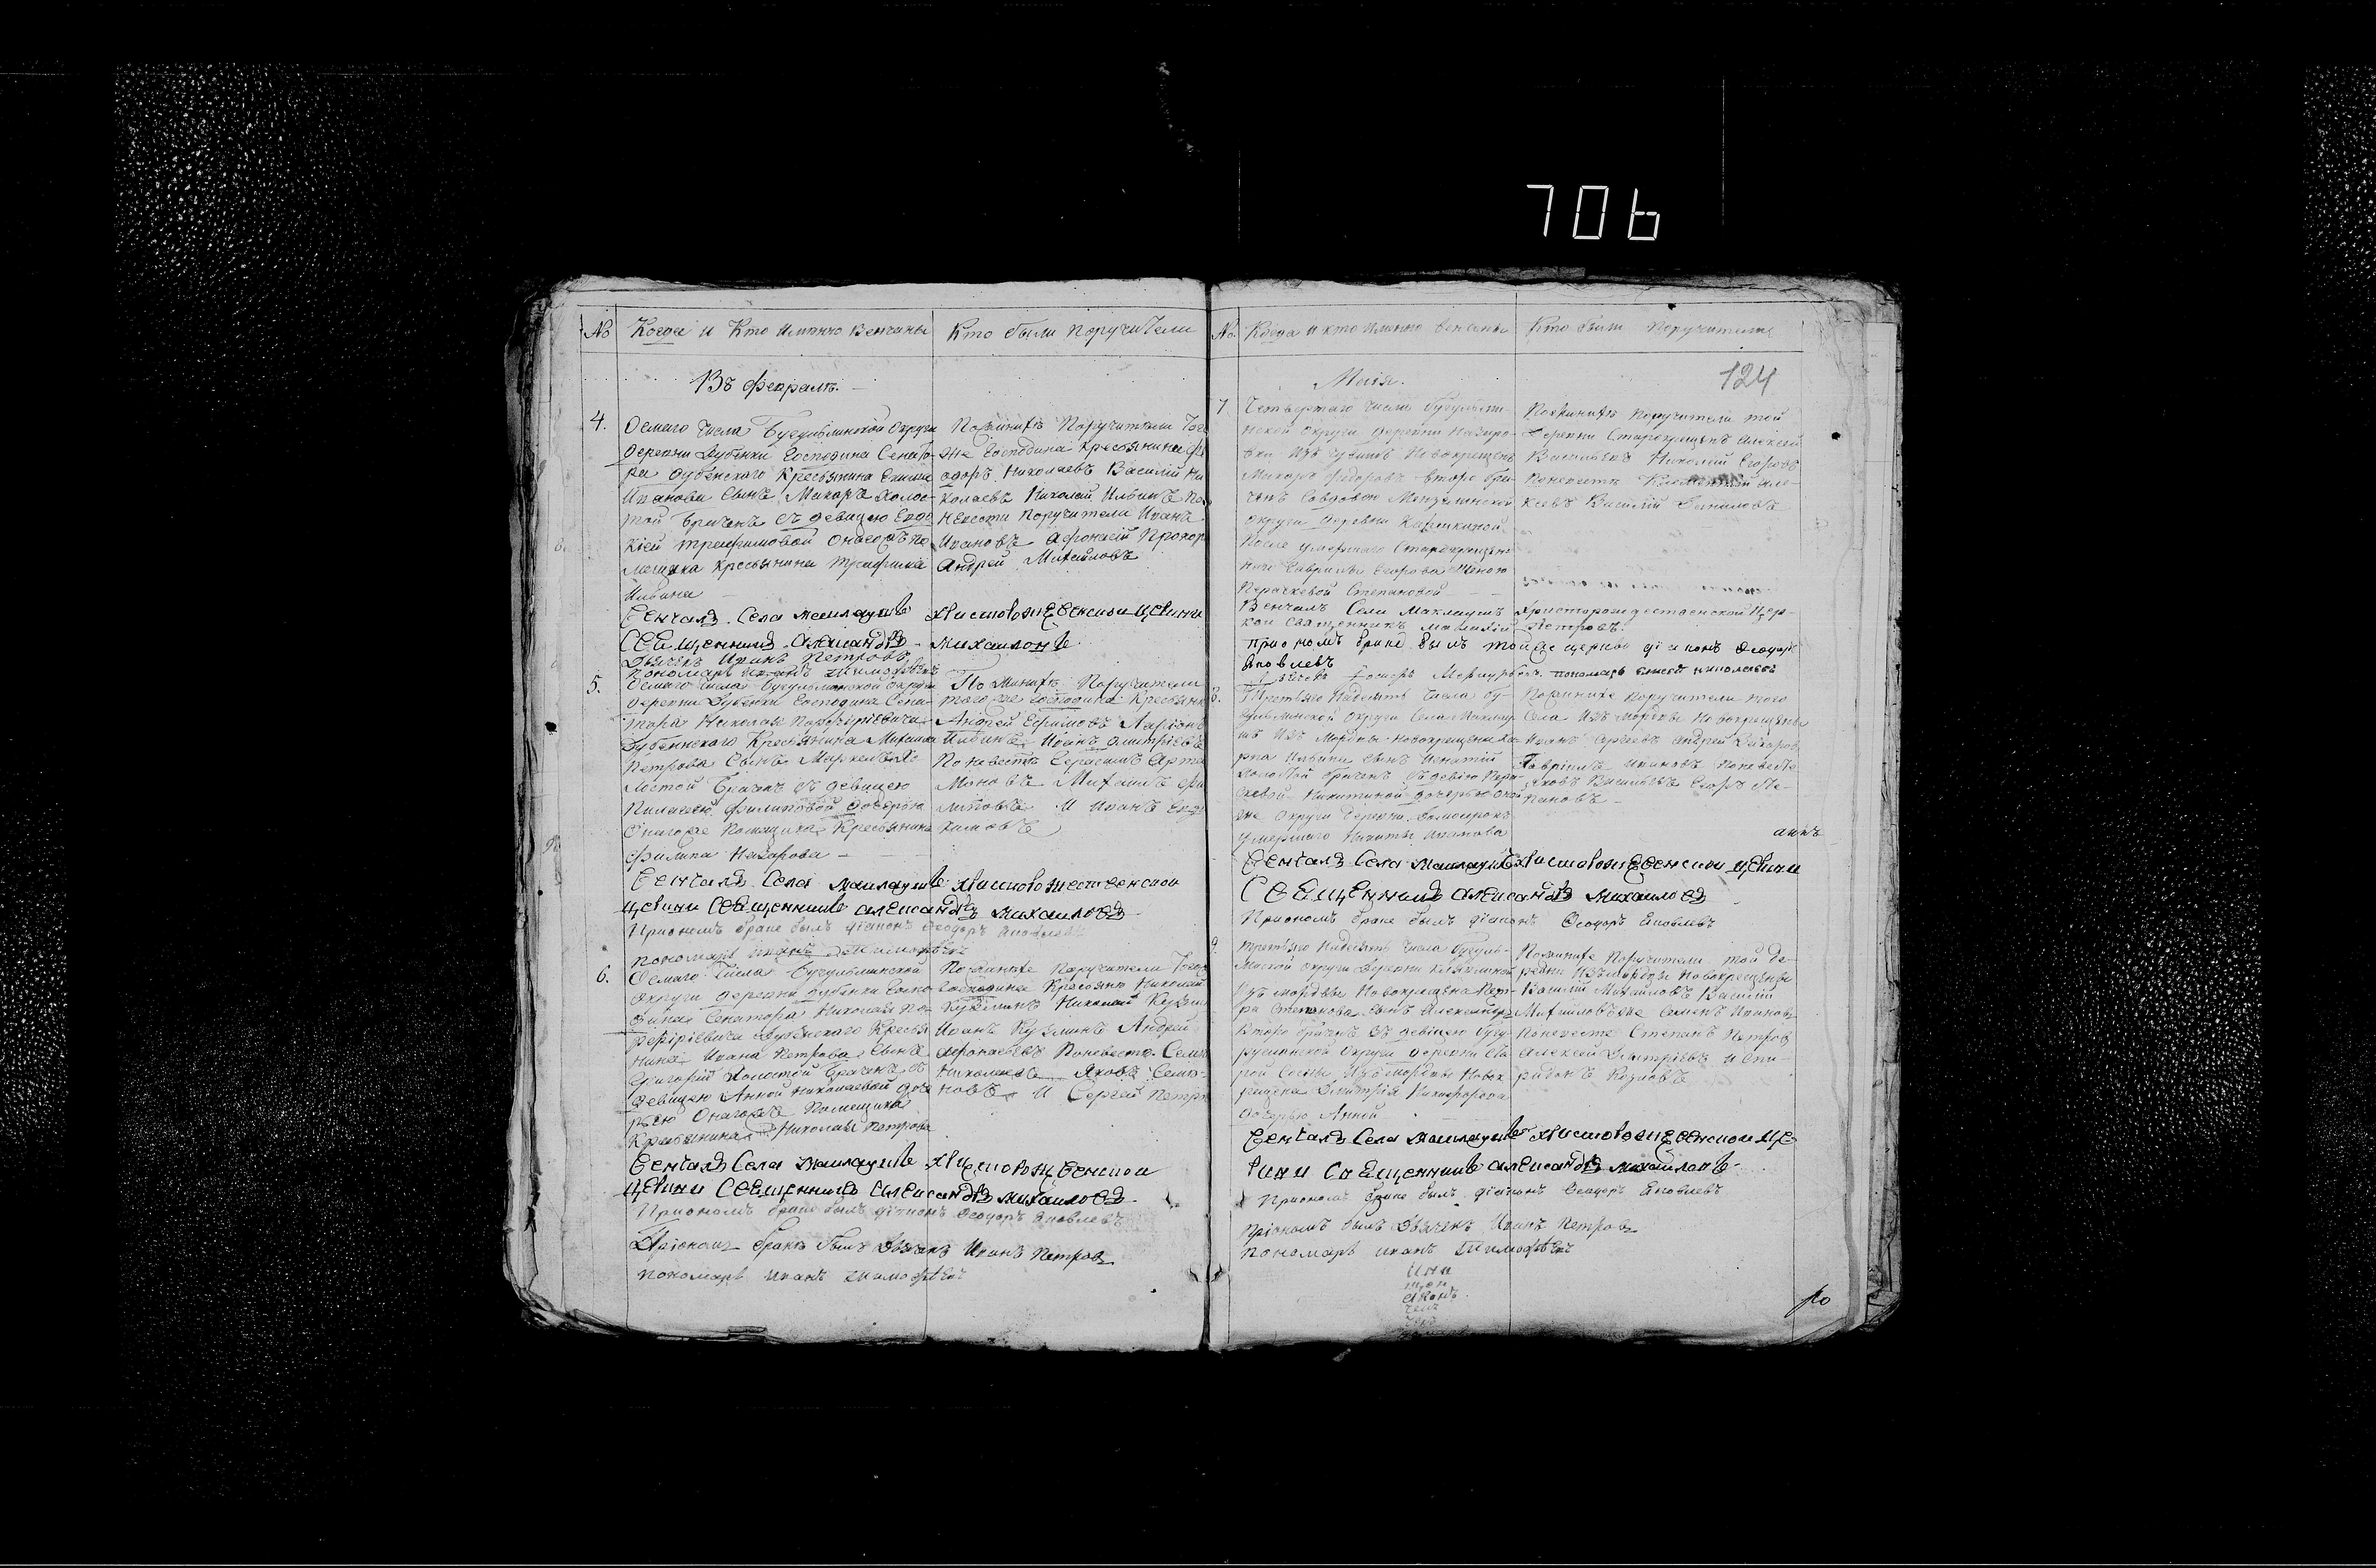 706
№ Когда и Кто имянно Венчаны
Кто были поручители
Въ Февралѣ.
4.
Осмаго числа Бугульминской округи
деревни Дубенки Господина Сенато-
ра Дубенского Крестьянина
Иванова сынъ Макаръ холос-
той Браченъ съ девицею Евдо
кіей Трефимовой онагожъ по
мещика крестьянина Трефима
Ильина
По женихѣ Поручители Того
же Господина крестьянина Фе
одоръ Николаевъ Василій Ни
колаевъ Николай Ильинъ По
невести поручители Иванъ
Ивановъ Афонасій Прохор
Андрей Михайловъ
Венчалъ Села Маклаушъ Христорождевенской церкви
Священникъ Александръ Михаиловъ
Дьячекъ Иванъ Петровъ
Пономарь Иванъ Тимофѣевъ
5.
Осмаго числа Бугульминской округи
деревни Дубенки Господина Сена-
тора Николая Порфиріевича
Дубенского Крестьянина Михаила
Петрова сынъ Маркелъ Хо
лостой Браченъ съ девицею
Пелагеей Филиповой дочерью
Онагоже помещика Крестьянина
Филипа Назарова
По женихѣ Поручители
того же господина Крестьяне
Андрей Ефимовъ Ларіонъ
Ильинъ Иванъ Дмитріевъ
По невестѣ Герасимъ Арта
моновъ Михаилъ Фи
липовъ И Иванъ Евдо
кимовъ
Венчалъ Села Маклаушъ Христорожественской
церкви Священникъ Александръ Михаиловъ
Приономъ браке былъ діаконъ Феодоръ Яковлевъ
пономарь Иванъ Тимофѣевъ
6.
Осмаго Числа Бугульминской
округи деревни Дубенки Госпо
дина Сенатора Николая По
рфиріевича Дубенскаго Кресть
нина Ивана Петрова сынъ
Григорий Холостой Браченъ съ
девицею Анной Николаевой доче
рью Онагожъ Помещика
Крестьянина Николая Петрова
По женихе Поручители Тогож
господина Кресьяне Николай
Кузминъ Николай Кузми
Иванъ Кузминъ Андрей
Афонасьевъ По невесте Семен
Николаевъ Яковъ Семе-
новъ И Сергей Петро
Венчалъ Села Маклаушъ Христорождвенской
церкви Священникъ Александръ Михаиловъ
Приономъ браке былъ діаконъ Феодоръ Яковлевъ
Пріономъ бракѣ былъ Дьячекъ Иванъ Петровъ
Пономарь Иванъ Тимофѣевъ
№ Когда и кто имянно венчаны
Кто были поручители
124
Маія.
7
Четвертаго числа Бугульми-
нской округи деревни Назиро-
вки изъ чувашъ новокрещенъ
Макаръ Федоровъ второ бра-
ченъ со вдовою Мензелинской
округи деревни
После умершаго старокрещен
Гаврилы Егорова женою
Степановой
По женихѣ поручители той
деревни старокрещенъ Алексей
Васильевъ Николай Егоровъ
По невестѣ Але-
ксеевъ Василій Даниловъ
Венчалъ Села Маклаушъ Христорождественской цер-
кви священникъ Петровъ.
при ономъ браке былъ тойже церкви діаконъ Феодоръ
Яковлевъ
пономарь Николаевъ
8.
Третьяго надесять числа Бу-
гульминской округи Села Маклау-
шъ Изъ Мордвы новокрещена Ка
рпа Ильина сынъ Игнатій
холостой браченъ съ девицею
Никитиной дочерью
же округи деревни
умершаго Никиты Иванова
По женихе поручители того
села Изъ Мордвы новокрещены
Иванъ Андрей
Гаврилъ Ивановъ по невесте
Яковъ Васильевъ Егоръ Сте-
пановъ
Венчалъ Села Маклаушъ Христорождевенской церкви
Священникъ Александръ Михаиловъ
Приономъ браке былъ діаконъ Феодоръ Яковлевъ
9
третьяго надесять числа Бугуль-
минской округи деревни
Изъ мордвы новокрещена Пет-
ра Степанова сынъ Александръ
второ браченъ съ девицею Бугу
русланской округи деревни Ста
рой Сосны Изъ мордвы Новок
рещена Дмитрія Никифорова
дочерью Анной
По женихе Поручители той де-
ревни Изъ мордвы новокрещены
Василій Михайловъ Василій
Михайловъ же Семенъ Ивановъ
По невесте Степанъ Петровъ
Алексей Дмитріевъ и Спи-
ридонъ Козловъ
Венчалъ Села Маклаушъ Христорождевенской це-
ркви Священникъ Александръ Михаиловъ
Приономъ браке былъ діаконъ Феодоръ Яковлевъ
Пріономъ былъ Дьячекъ Иванъ Петровъ
Пономарь Иванъ Тимофѣевъ